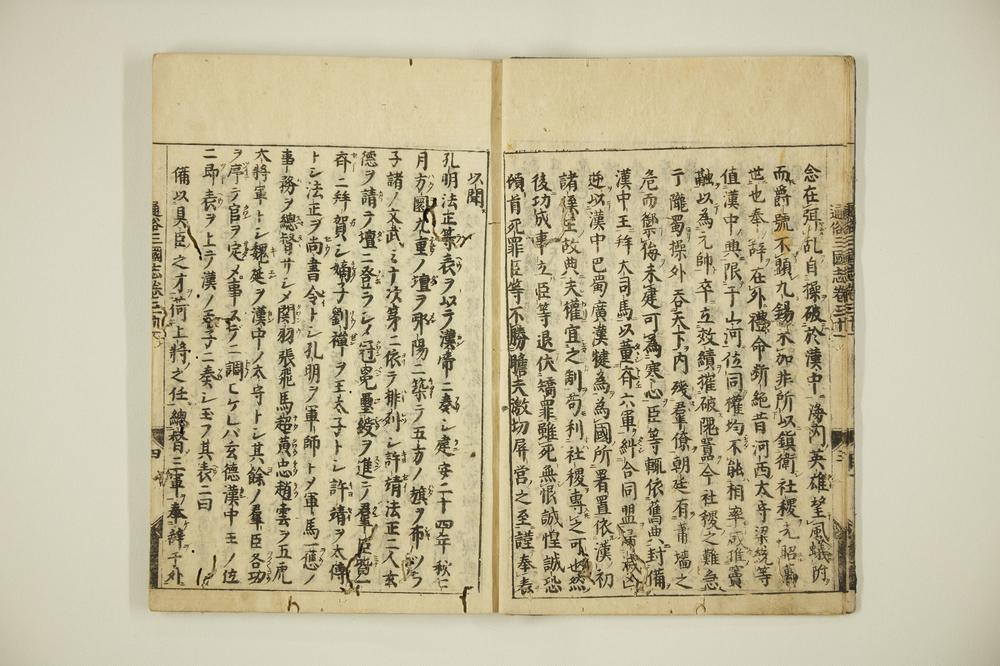 念在弭乱自操破於漢中海内英雄望風蟻附
而爵號不顯九錫不加非所以鎮衛社稷光昭萬
世也奉辞在外禮命断絶昔河西太守梁統等
値漢中興限于山河位同權均不能相率咸推竇
融以為元帥卒立效績摧破隗囂今社稷之難急
于隴蜀操外呑天下内残羣僚朝廷有蕭墻之
危而禦侮未建可為寒心臣等輙依舊典封備
漢中王拜大司馬以董斉六軍糾合同盟掃滅凶
逆以漢中巴蜀廣漢犍為為國所署置依漢初
諸侯王故典夫權宜之制苟利社稷專之可也然
後功成事立臣等退伏矯罪雖死無恨誠惶誠恐
頓首死罪臣等不勝瞻天激切屏営之至謹奉表
以聞
孔明法正等表ヲ以テ漢帝ニ奏シ建安二十四年秋七
月方圓九重ノ壇ヲ沔陽ニ築テ五方ノ旗ヲ布ツラ
子諸ノ文武ミナ次第ニ依テ排列シ許靖法正二人玄
德ヲ請テ壇ニ登ラシメ冠冕璽綬ヲ進ラ羣臣皆一
斉ニ拜賀シ嫡子劉禪ヲ王太子トシ許靖ヲ太傳
トシ法正ヲ尚書令トシ孔明ヲ軍師トメ軍馬一應ノ
事務ヲ總督サシメ関羽張飛馬超黄忠趙雲ヲ五虎
大將軍トシ魏延ヲ漢中ノ太守トシ其餘ノ羣臣各功
ヲ序テ官ヲ定メ事ステニ調ヒケレバ玄德漢中王ノ位
ニ即表ヲ上テ漢ノ天子ニ奏シ玉フ其表ニ曰
備以具臣之才荷上將之任總督三軍奉辞于外
通俗三國志巻三十